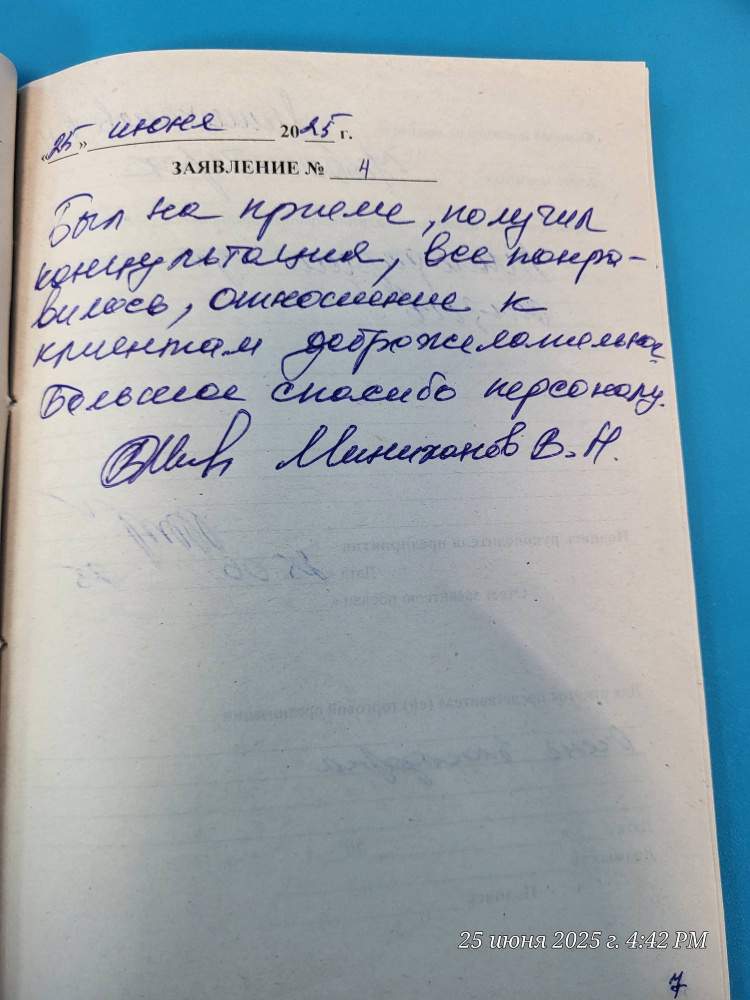 «25» июня 2025 г.
ЗАЯВЛЕНИЕ № 4
Был на приеме, получил
консультация, все понра-
вилось, отношение к
клиентам доброжелательное
Большое спасибо персоналу.
Миниханов В.Н.
25 июня 2025 г. 4:42 PM
7